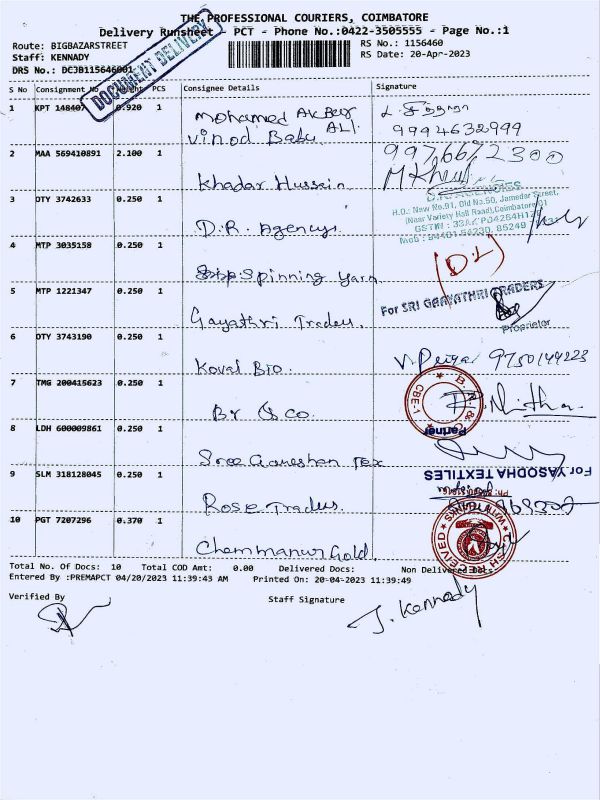 THE PROFESSIONAL COURIERS, COIMBATORE
Delivery Runsheet - PCT - Phone No.:0422-3505555 - Page No.:1
Route: BIGBAZARSTREET
RS No.: 1156460
Staff: KENNADY
RS Date: 20-Apr-2023
DRS No.: DCJB115646001
DOCUMENT DELIVERY
S No Consignment No Weight PCS Consignee Details Signature
1 KPT 148407 0.920 1 Mohamed Akber ALI
Vinod Babu
9994632999
2 MAA 569410891 2.100 1 Khadar Hussain
9976672300
3 OTY 3742633 0.250 1 D.R. Agencys
D.R. AGENCIES
H.O.: New No.91, Old No.50, Jamedar Street,
(Near Variety Hall Road), Coimbatore
4 MTP 3035158 0.250 1 Spinning yarn
5 MTP 1221347 0.250 1 Gayathri Traders
For SRI GAAYATHRI TRADERS
Proprietor
6 OTY 3743190 0.250 1 Kovai Bio
9750144223
7 TMG 200415623 0.250 1 Br & Co.
CBE-1
Partner
8 LDH 600009861 0.250 1 Sree Ganeshan Tex
For YASODHA TEXTILES
9 SLM 318128045 0.250 1 Rose Traders
10 PGT 7207296 0.370 1 Chemmanur Gold
RECEIVED
Total No. Of Docs: 10 Total COD Amt: 0.00 Delivered Docs: Non Delivered Docs:
Entered By :PREMAPCT 04/20/2023 11:39:43 AM Printed On: 20-04-2023 11:39:49
Verified By
Staff Signature
J. Kennady